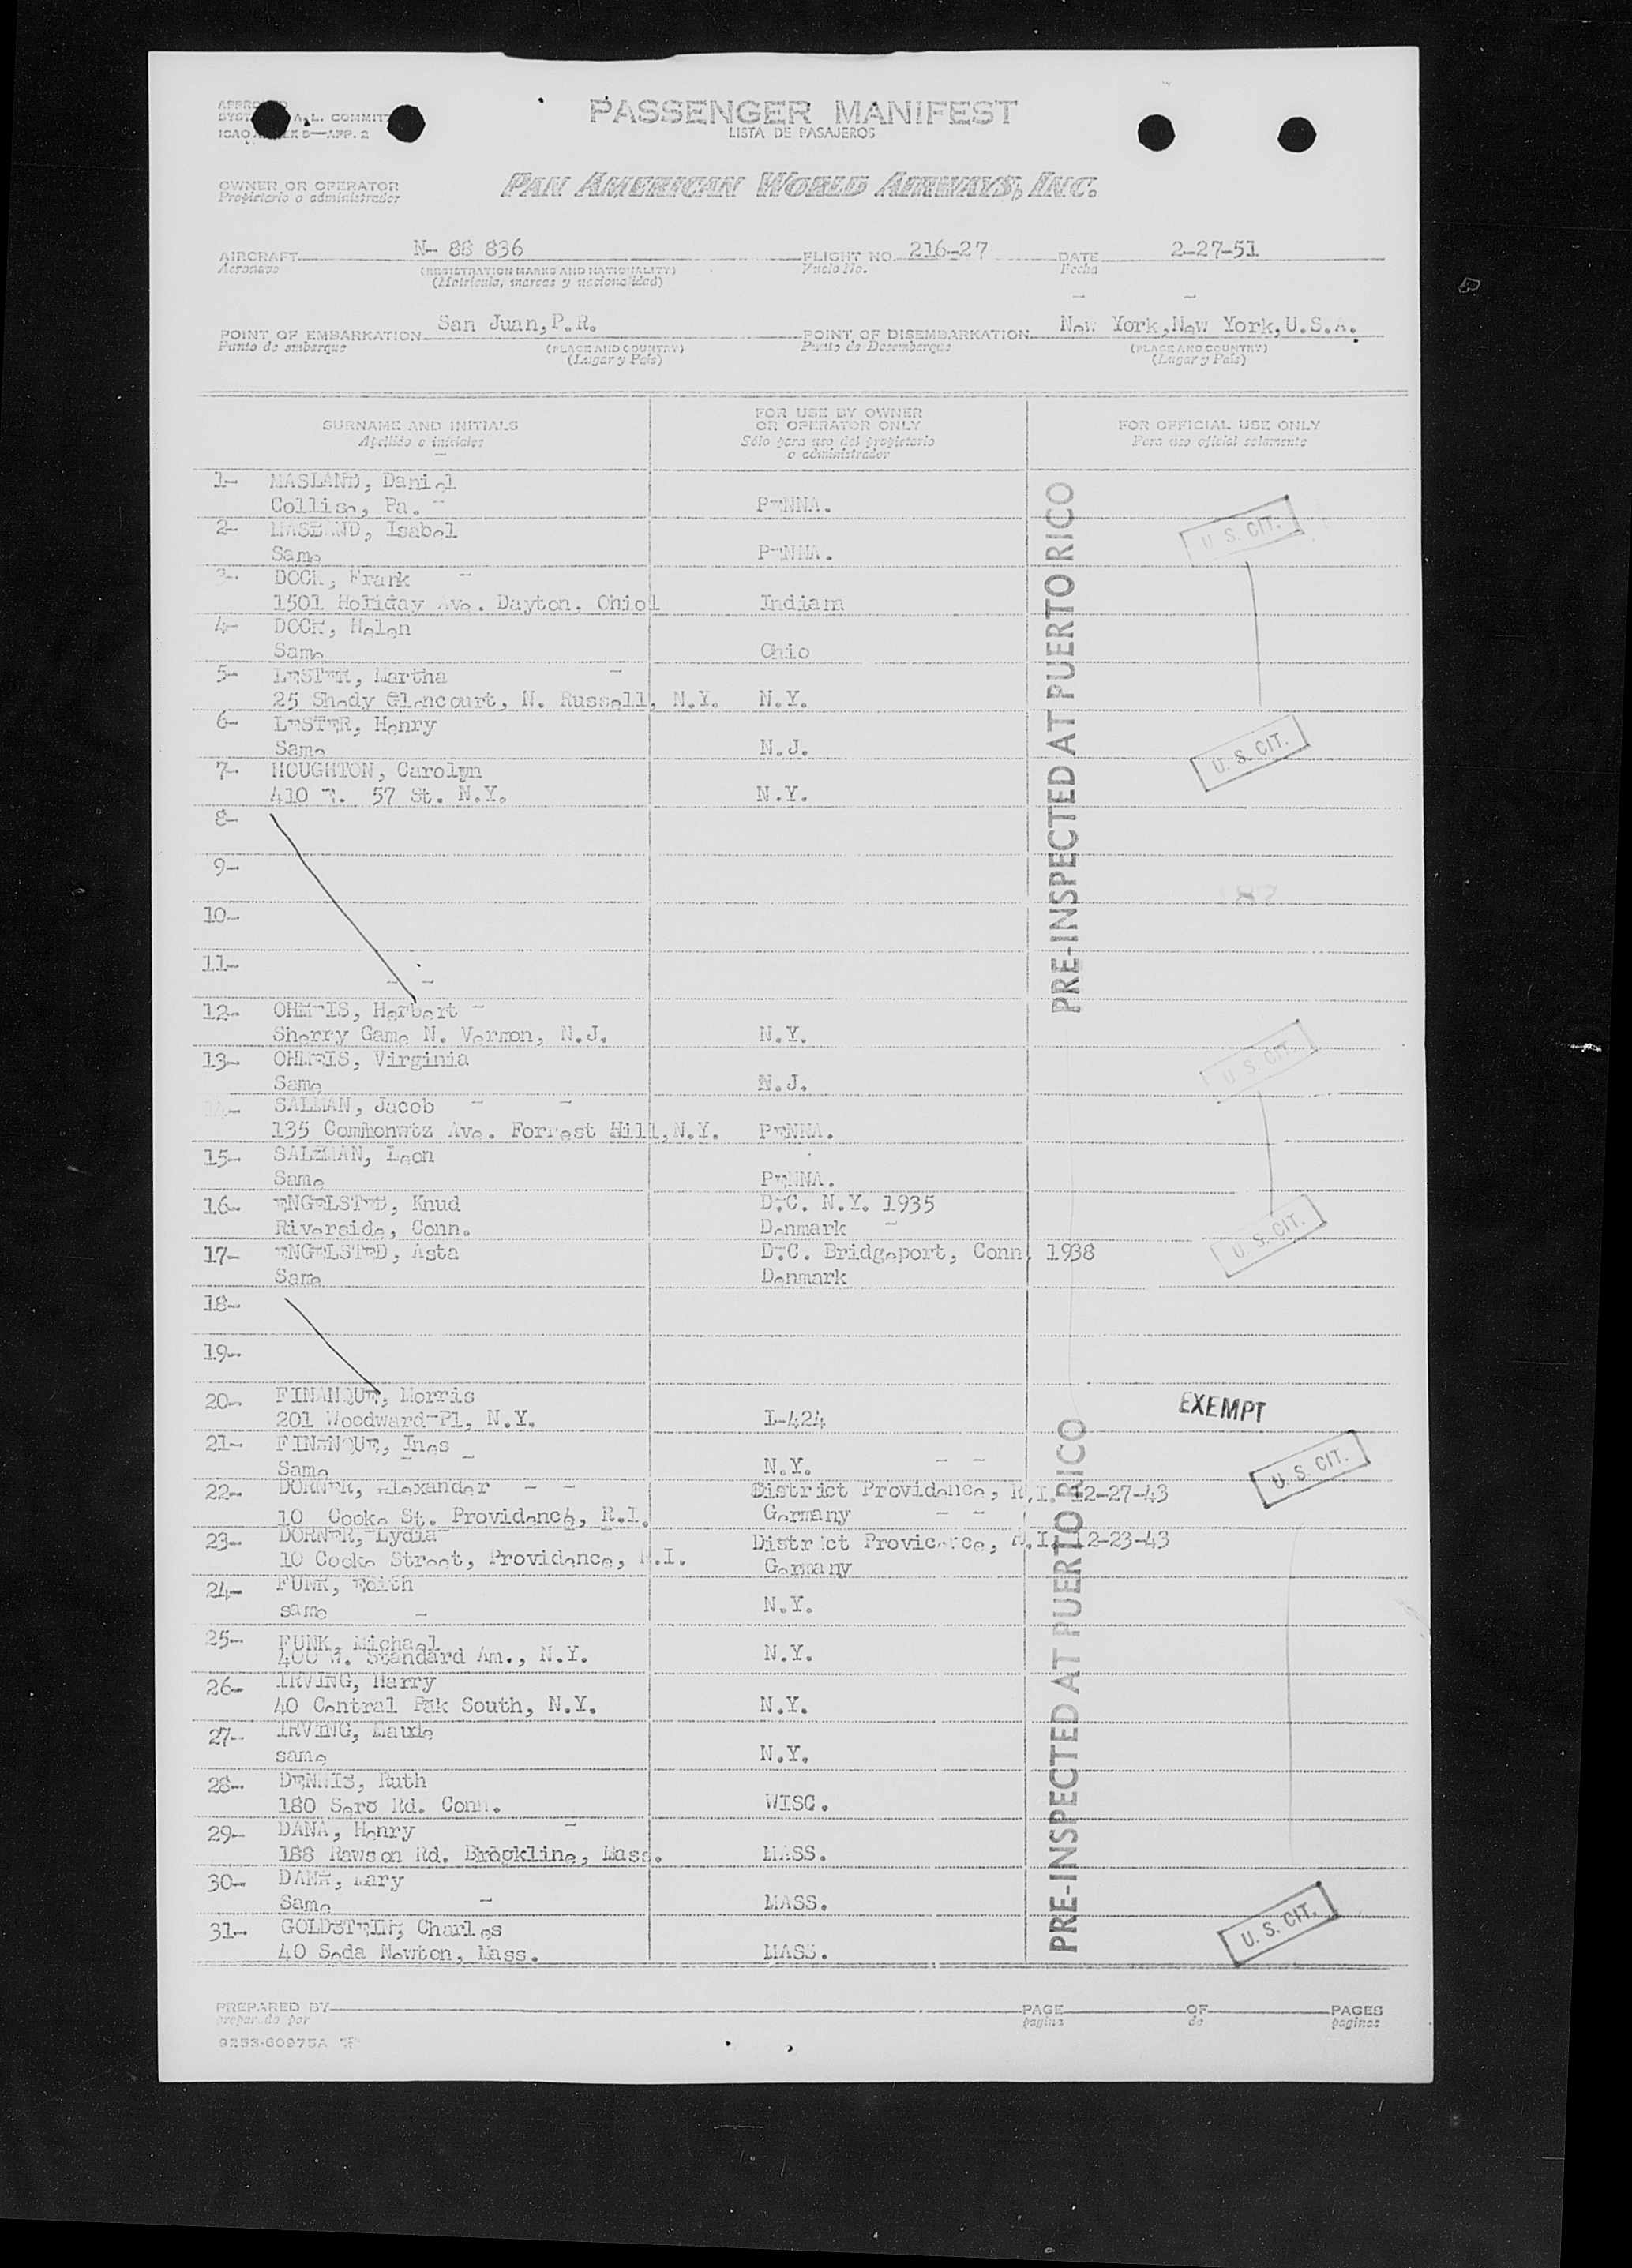 PASSENGER MANIFEST
LISTA DE PASAJEROS
OWNER OR OPERATOR
Propietario o administrador
PAN AMERICAN WORLD AIRWAYS, INC.
AIRCRAFT N- 88 836 FLIGHT NO. 216-27 DATE 2-27-51
Aeronave (REGISTRATION MARKS AND NATIONALITY) Vuelo No. Fecha
(Matrícula, marcas y nacionalidad)
POINT OF EMBARKATION San Juan, P.R. POINT OF DISEMBARKATION New York, New York, U.S.A.
Punto de embarque (PLACE AND COUNTRY) Punto de Desembarque (PLACE AND COUNTRY)
(Lugar y País) (Lugar y País)
SURNAME AND INITIALS FOR USE BY OWNER OR OPERATOR ONLY FOR OFFICIAL USE ONLY
Apellido e iniciales Sólo para uso del propietario o administrador Para uso oficial solamente
1- MASLAND, Daniel
Collise, Pa. PENNA.
2- MASLAND, Isabel
Same PENNA.
DOCK, Frank
1501 Holiday Ave. Dayton, Ohio Indiam
4- DOCK, Helen
Same Ohio
5- LESTER, Martha
25 Shady Glencourt, N. Russell, N.Y. N.Y.
6- LESTER, Henry
Same N.J.
7- HOUGHTON, Carolyn
410 E. 57 St. N.Y. N.Y.
8-
9-
10-
11-
12- OHMEIS, Herbert
Sherry Game N. Vermon, N.J. N.Y.
13- OHMEIS, Virginia
Same N.J.
SALMAN, Jacob
135 Commonwtz Ave. Forrest Hill, N.Y. PENNA.
15- SALZMAN, Leon
Same PENNA.
16- ENGELSTED, Knud D.C. N.Y. 1935
Riverside, Conn. Denmark
17- ENGELSTED, Asta D.C. Bridgeport, Conn. 1938
Same Denmark
18-
19-
20- FINANQUE, Morris
201 Woodward Pl, N.Y. I-424
21- FINANQUE, Ines
Same N.Y.
22- DORNER, Alexander District Providence, R.I. 12-27-43
10 Cooke St. Providence, R.I. Germany
23- DORNER, Lydia District Providence, R.I. 12-23-43
10 Cooke Street, Providence, R.I. Germany
24- FUNK, Edith
same N.Y.
25- FUNK, Michael
400 W. Standard Am., N.Y. N.Y.
26- IRVING, Harry
40 Central Pak South, N.Y. N.Y.
27- IRVING, Maude
same N.Y.
28- DENNIS, Ruth
180 Rd. Conn. WISC.
29- DANA, Henry
188 Rawson Rd. Brookline, Mass. MASS.
30- DANA, Mary
Same MASS.
31- GOLDSTEIN, Charles
40 Seda Newton, Mass. MASS.
PRE-INSPECTED AT PUERTO RICO
U. S. CIT.
U. S. CIT.
U. S. CIT.
U. S. CIT.
EXEMPT
U. S. CIT.
PRE-INSPECTED AT PUERTO RICO
U. S. CIT.
PREPARED BY PAGE OF PAGES
preparado por página de páginas
9253-60975A